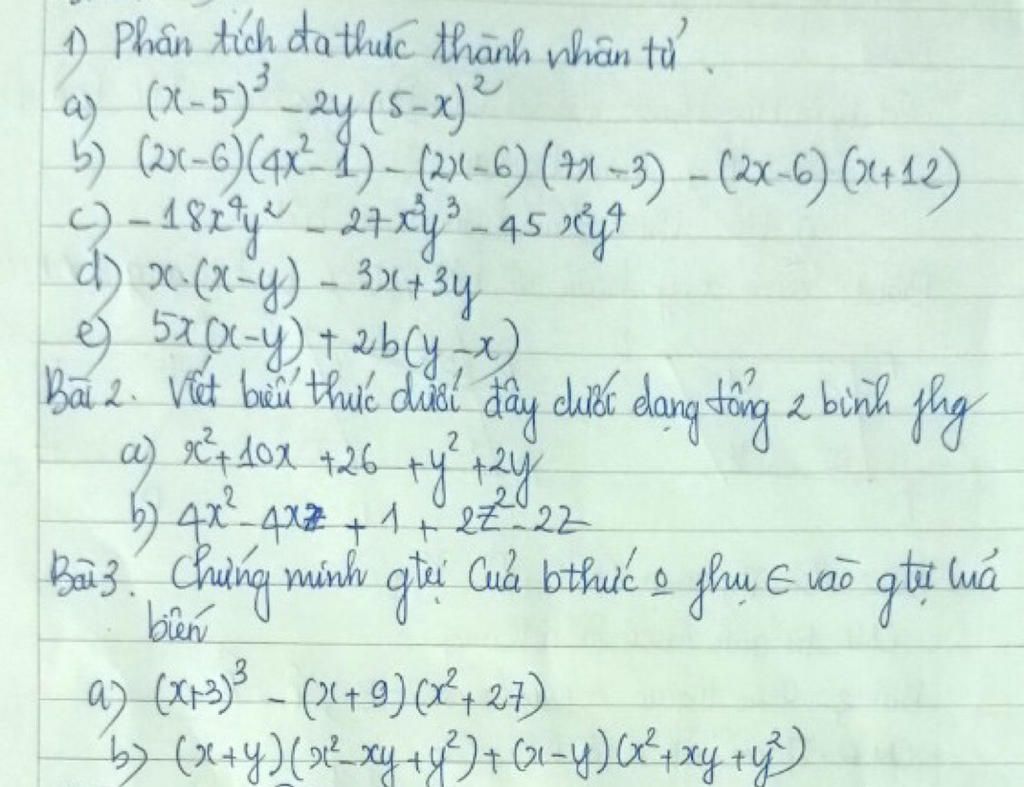 1) Phân tích đa thức thành nhân tử.
a) (x-5)³ - 2y(5-x)²
b) (2x-6)(4x²-1) - (2x-6)(7x-3) - (2x-6)(x+12)
c) -18x⁴y² - 27x³y³ - 45x²y⁴
d) x.(x-y) - 3x+3y
e) 5x(x-y) + 2b(y-x)
Bài 2. Viết biểu thức dưới đây dưới dạng tổng 2 bình phg
a) x²+10x +26 +y²+2y
b) 4x²-4xz + 1 + 2z²-2z
Bài 3. Chứng minh gtrị của bthức o phụ ∈ vào gtrị của
biến
a) (x+3)³ - (x+9)(x²+27)
b) (x+y)(x²-xy+y²)+(x-y)(x²+xy+y²)